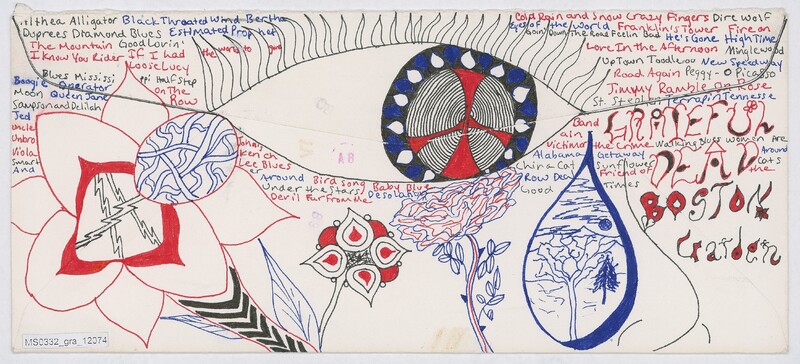 Althea Alligator Black Throated Wind Bertha
Duprees Diamond Blues Estimated Prophet
The Mountain Good Lovin'
I Know You Rider If I had the world to give
Loose Lucy
Blues Mississippi Half Step
Boogie Operator on the
Moon Queen Jane Row
Samson and Delilah
Jed
Uncle
Unbro
Viola
Smart
And
Cold Rain and Snow Crazy Fingers Dire Wolf
Eyes of the World Franklin's Tower Fire on
Goin' Down The Road Feelin Bad He's Gone High Time
Lore In the Afternoon Minglewood
Uptown Toodleoo New Speedway
Road Again Peggy-O Picasso
Jimmy Ramble On Rose
St. Stephen Terrapin Tennesse
Band
ain
Victim or the Crime Walking Blues Women Are
Alabama Getaway Around
China Cat Sunflower Cats
Row Deal Friend of the
Good Times
Johnny
ken ch
Lee Blues
er Around Bird song Baby Blue
Under the stars Desolation
Devil Fur From the
GRATEFUL
DEAD
BOSTON
Garden
A8
MS0332_gra_12074